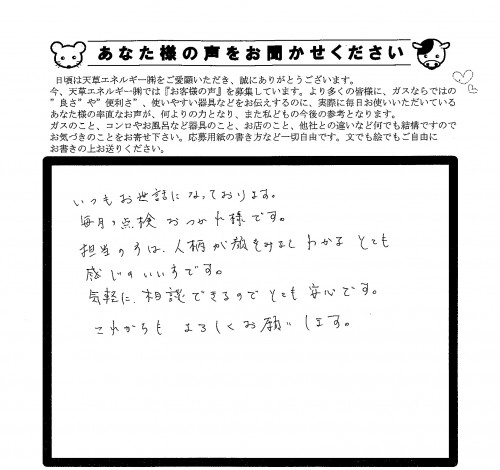 あなた様の声をお聞かせください
日頃は天草エネルギー㈱をご愛顧いただき、誠にありがとうございます。
今、天草エネルギー㈱では『お客様の声』を募集しています。より多くの皆様に、ガスならではの
"良さ"や"便利さ"、使いやすい器具などをお伝えするのに、実際に毎日お使いいただいている
あなた様の率直なお声が、何よりの力となり、また私どもの今後の参考となります。
ガスのこと、コンロやお風呂など器具のこと、お店のこと、他社との違いなど何でも結構ですので
お気づきのことをお寄せ下さい。応募用紙の書き方など一切自由です。文でも絵でもご自由に
お書きの上お送りください。
いつもお世話になっております。
毎月の点検 おつかれ様です。
担当の方は、人柄が顔をみるとわかる とても
感じのいい方です。
気軽に、相談できるので とても 安心です。
これからも よろしくお願いします。